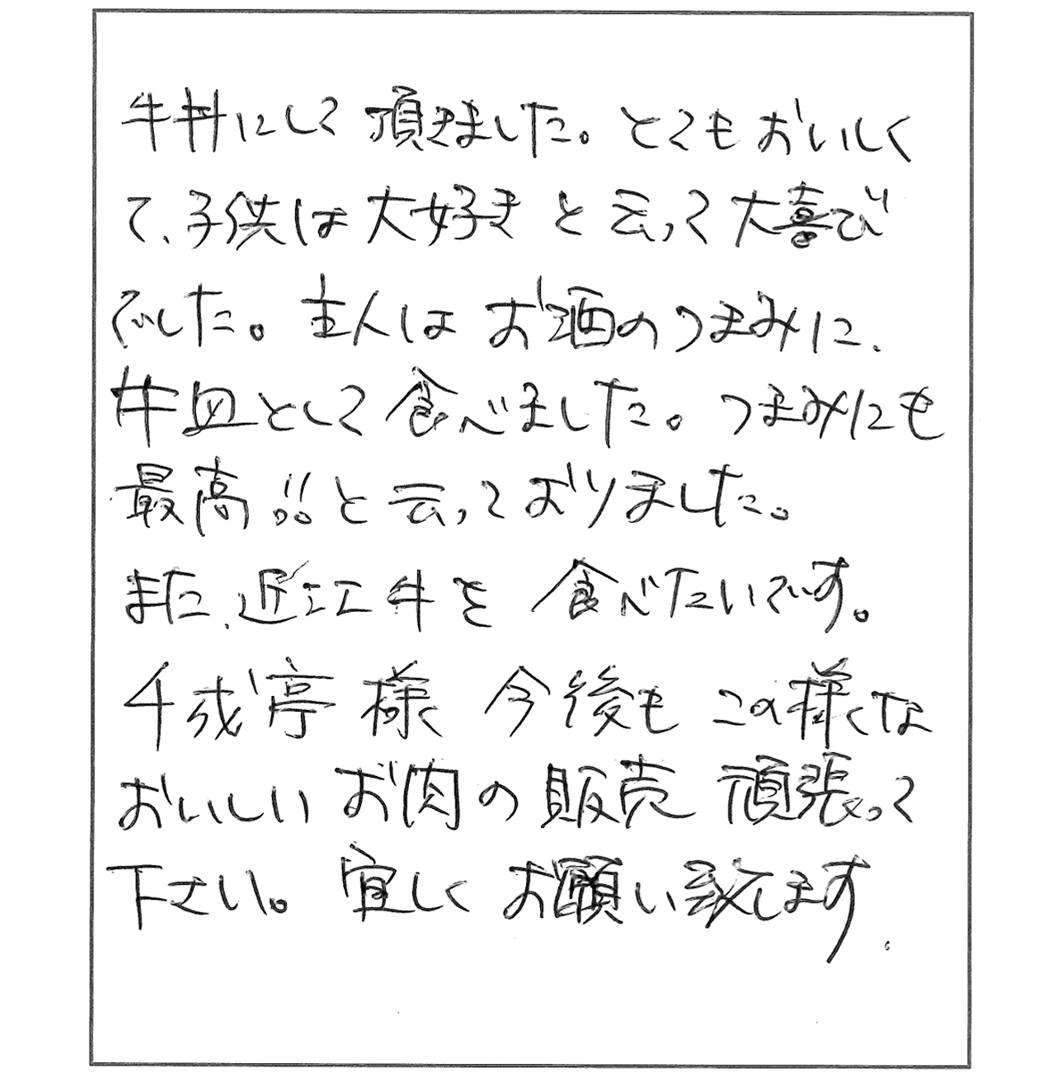 牛丼にして頂きました。とてもおいしく
て、子供は大好きと云って大喜び
でした。主人はお酒のつまみに、
牛皿として食べました。つまみにも
最高!!と云っておりました。
また、近江牛を食べたいです。
千成亭様 今後もこの様な
おいしいお肉の販売 頑張って
下さい。宜しくお願い致します.